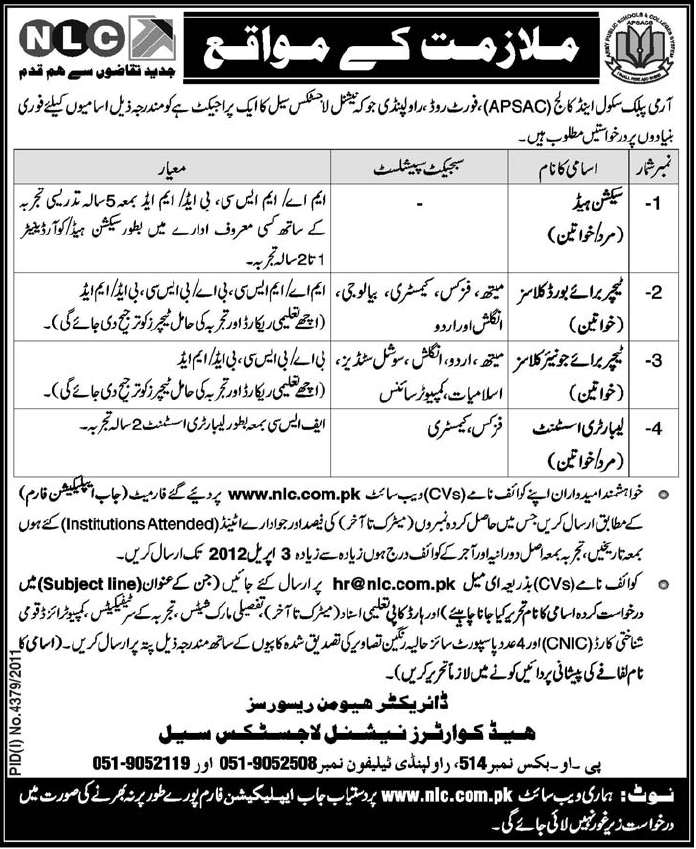 NLC
جدید تقاضوں سے ہم قدم
ملازمت کے مواقع
ARMY PUBLIC SCHOOLS & COLLEGES SYSTEM
APSACS
I SHALL RISE AND SHINE
آرمی پبلک سکول اینڈ کالج (APSAC)، فورٹ روڈ، راولپنڈی جو کہ نیشنل لاجسٹکس سیل کا ایک پراجیکٹ ہے کو مندرجہ ذیل اسامیوں کیلئے فوری
بنیادوں پر درخواستیں مطلوب ہیں۔
نمبر شمار | اسامی کا نام | سبجیکٹ سپیشلسٹ | معیار
1- | سیکشن ہیڈ (مرد/خواتین) | - | ایم اے/ ایم ایس سی، بی ایڈ/ ایم ایڈ بمعہ 5 سالہ تدریسی تجربہ
کے ساتھ کسی معروف ادارے میں بطور سیکشن ہیڈ/کوآرڈینیٹر
1 تا 2 سالہ تجربہ۔
2- | ٹیچر برائے بورڈ کلاسز (خواتین) | میتھ، فزکس، کیمسٹری، بیالوجی، انگلش اور اردو | ایم اے/ ایم ایس سی، بی اے/ بی ایس سی، بی ایڈ/ ایم ایڈ
(اچھے تعلیمی ریکارڈ اور تجربہ کی حامل ٹیچرز کو ترجیح دی جائے گی)۔
3- | ٹیچر برائے جونیئر کلاسز (خواتین) | میتھ، اردو، انگلش، سوشل سٹڈیز، اسلامیات، کمپیوٹر سائنس | بی اے/ بی ایس سی، بی ایڈ/ ایم ایڈ
(اچھے تعلیمی ریکارڈ اور تجربہ کی حامل ٹیچرز کو ترجیح دی جائے گی)۔
4- | لیبارٹری اسسٹنٹ (مرد/خواتین) | فزکس، کیمسٹری | ایف ایس سی بمعہ بطور لیبارٹری اسسٹنٹ 2 سالہ تجربہ۔
خواہشمند امیدواران اپنے کوائف نامے (CVs) ویب سائٹ www.nlc.com.pk پر دیئے گئے فارمیٹ (جاب ایپلیکیشن فارم)
کے مطابق ارسال کریں جس میں حاصل کردہ نمبروں (میٹرک تا آخر) کی فیصد اور جو ادارے اٹینڈ (Institutions Attended) کئے ہوں
بمعہ تاریخیں، تجربہ بمعہ اصل دورانیہ اور آجر کے کوائف درج ہوں زیادہ سے زیادہ 3 اپریل 2012 تک ارسال کریں۔
کوائف نامے (CVs) بذریعہ ای میل hr@nlc.com.pk پر ارسال کئے جائیں (جن کے عنوان (Subject line) میں
درخواست کردہ اسامی کا نام تحریر کیا جانا چاہیئے) اور ہارڈ کاپی تعلیمی اسناد (میٹرک تا آخر)، تفصیلی مارک شیٹس، تجربہ کے سرٹیفکیٹس، کمپیوٹرائزڈ قومی
شناختی کارڈ (CNIC) اور 4 عدد پاسپورٹ سائز حالیہ رنگین تصاویر کی تصدیق شدہ کاپیوں کے ساتھ مندرجہ ذیل پتہ پر ارسال کریں۔ (اسامی کا
نام لفافے کی پیشانی پر دائیں کونے میں لازماً تحریر کریں)۔
ڈائریکٹر ہیومن ریسورسز
ہیڈ کوارٹرز نیشنل لاجسٹکس سیل
پی۔او۔بکس نمبر 514، راولپنڈی ٹیلیفون نمبر 051-9052508 اور 051-9052119
PID(I) No.4379/2011
نوٹ: ہماری ویب سائٹ www.nlc.com.pk پر دستیاب جاب ایپلیکیشن فارم پورے طور پر نہ بھرنے کی صورت میں
درخواست زیر غور نہیں لائی جائے گی۔